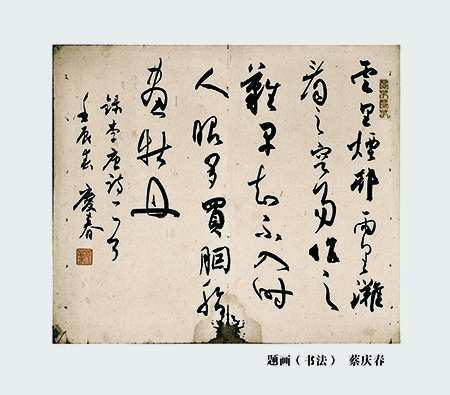 雲里煙邨雨里灘
看之容易作之
難早知不入時
人眼多買胭脂
畫牡丹
錄李唐詩一首
壬辰春 慶春
题画（书法） 蔡庆春